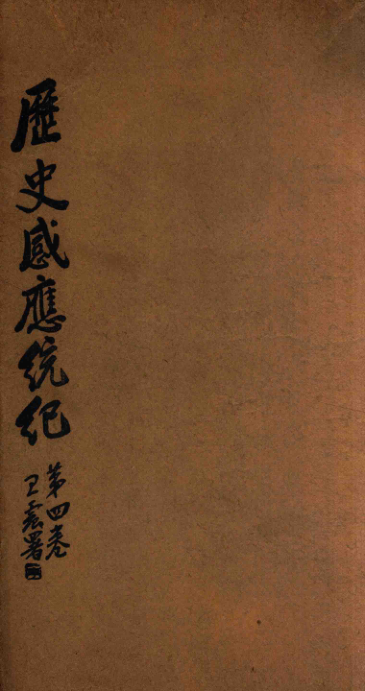 歷史感應統紀
第四卷
王震署